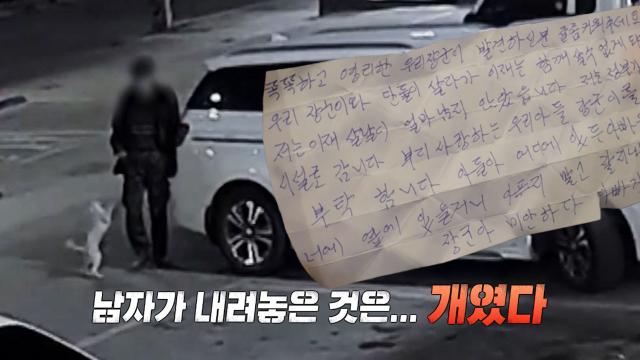 똑똑하고 영리한 우리장군이 발견하시면 잘좀키워주세요
우리 장군이와 단둘이 살다가 이제는 함께 살수 없게 돼
저는 이제 살날이 얼마남지 않았읍니다 저는
시설로 갑니다 부디 사랑하는 우리아들 장군이를
부탁 합니다 아들아 어디에 있든 아빠
너에 옆에 있을거니 아프지 말고 잘
장군아 미안하다 아빠가
남자가 내려놓은 것은... 개였다